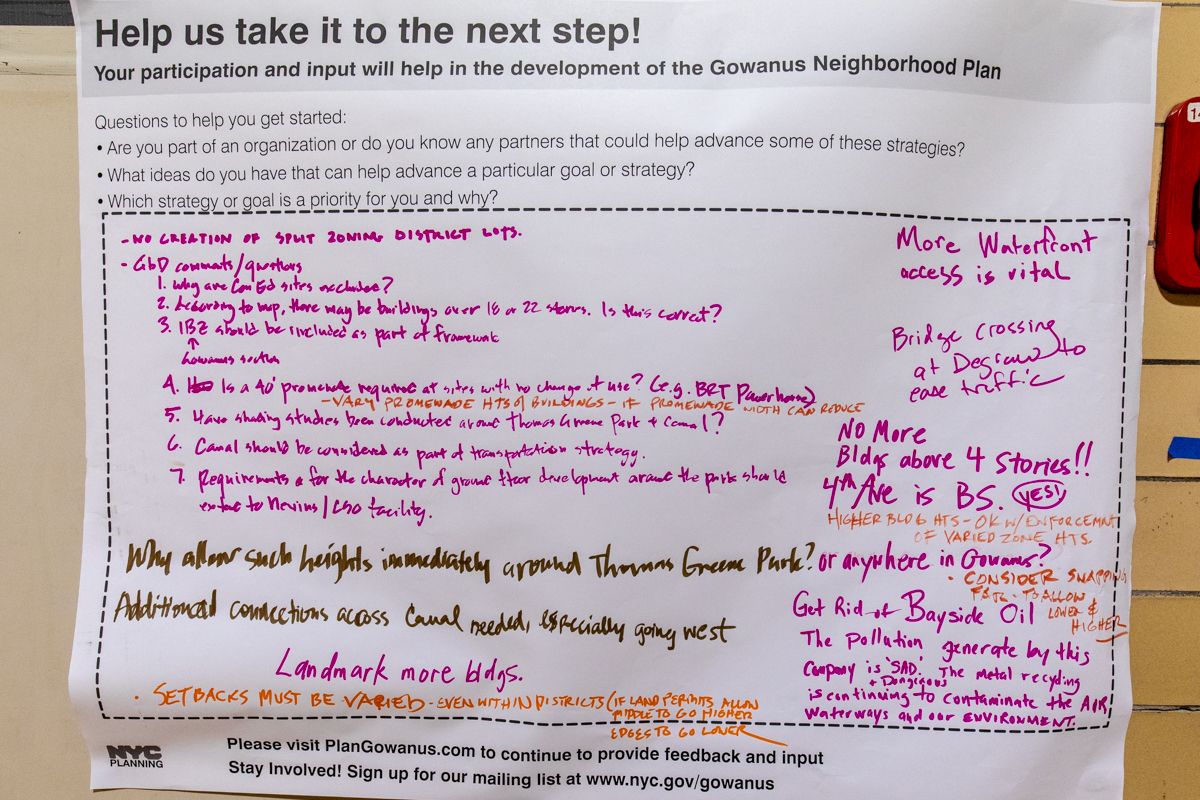 Help us take it to the next step!
Your participation and input will help in the development of the Gowanus Neighborhood Plan
Questions to help you get started:
• Are you part of an organization or do you know any partners that could help advance some of these strategies?
• What ideas do you have that can help advance a particular goal or strategy?
• Which strategy or goal is a priority for you and why?
- NO CREATION OF SPLIT ZONING DISTRICT LOTS.
- GbD comments/questions
1. Why are Con Ed sites excluded?
2. According to map, there may be buildings over 18 or 22 stories. Is this correct?
3. IBZ should be included as part of framework
↑
Gowanus section
4. Is a 40' promenade required at sites with no change of use? (e.g. BRT Powerhouse)
- VARY PROMEWADE HTS of BUILDINGS - IF PROMEWADE WIDTH CAN REDUCE
5. Have shading studies been conducted around Thomas Greene Park + Canal?
6. Canal should be considered as part of transportation strategy.
7. Requirements for the character of ground floor development around the park should
extend to Nevins / CSO facility.
Why allow such heights immediately around Thomas Greene Park? or anywhere in Gowanus?
Additional connections across Canal needed, especially going west
Landmark more bldgs.
• SETBACKS MUST BE VARIED - EVEN WITHIN DISTRICTS (IF LAND PERMITS ALLOW
MIDDLE TO GO HIGHER
EDGES TO GO LOWER
More Waterfront
access is vital
Bridge crossing
at Degraw to
ease traffic
No More
Bldgs above 4 Stories!!
4th Ave is BS. YES!
HIGHER BLDG HTS - OK W/ ENFORCEMNT
OF VARIED ZONE HTS.
• CONSIDER
TO ALLOW
LOWER &
HIGHER
Get Rid of Bayside Oil
The Pollution generate by this
Company is 'SAD'. The metal recycling
+ Dangerous
is continuing to contaminate the AIR,
Waterways and our ENVIRONMENT.
NYC
PLANNING
Please visit PlanGowanus.com to continue to provide feedback and input
Stay Involved! Sign up for our mailing list at www.nyc.gov/gowanus